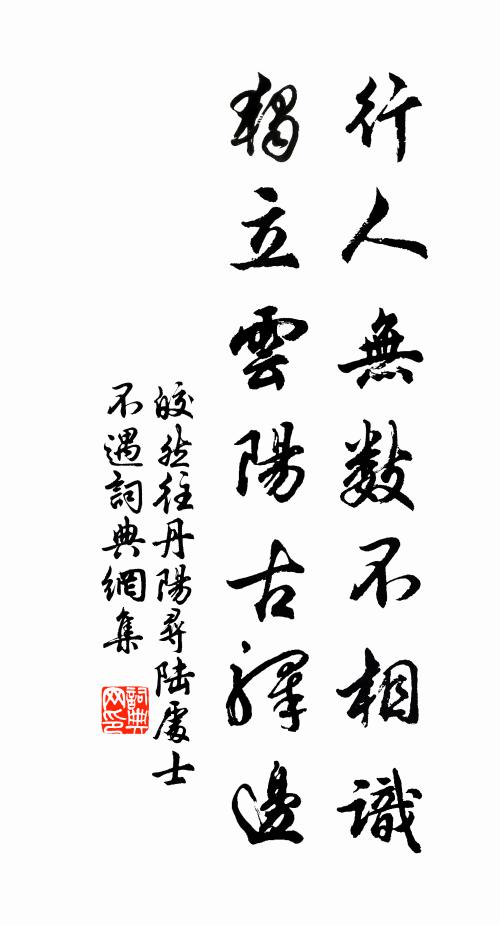 行人無数不相識
獨立雲陽古驛邊
皎然往丹陽尋陸處士
不遇詞典網集
詞典
网印